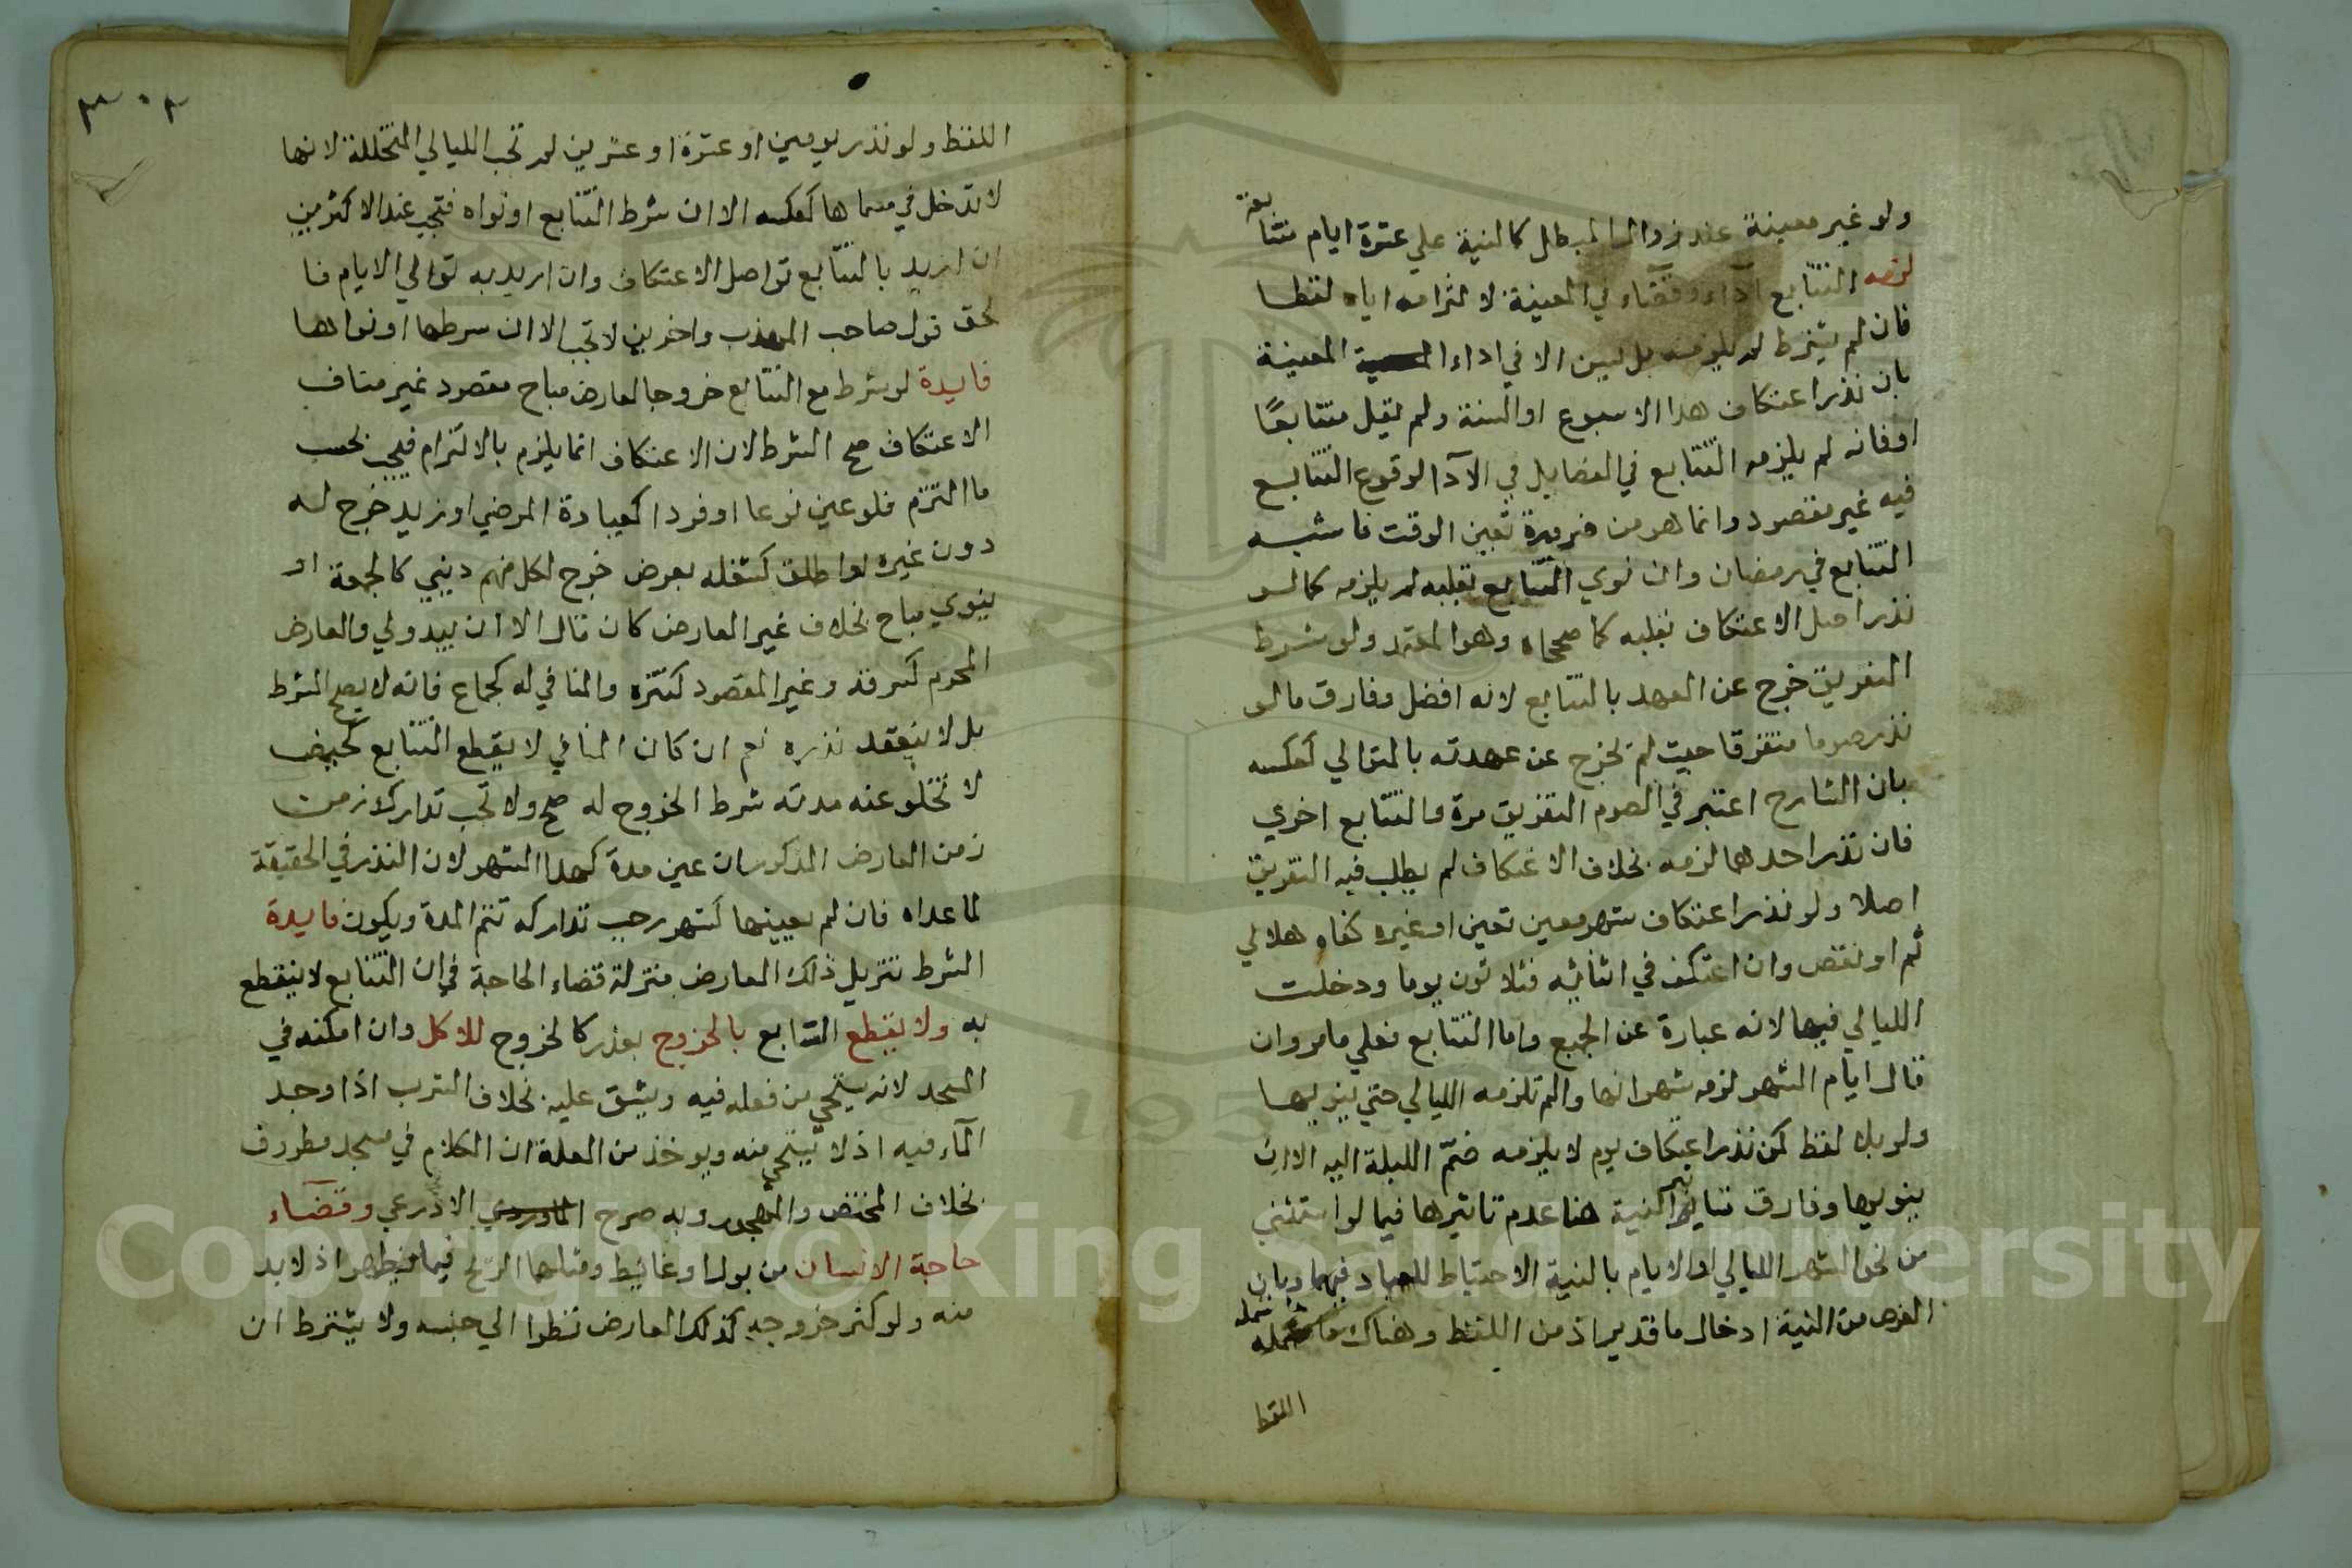 ولو غير معينة عند زوال المبطل كالنية علي عشرة ايام متتا
بعة
لزمه التتابع آداء وقضاء في المعينة لالتزامه اياه لفظا
فان لم يشترط لم يلزمه بل يسن الا في اداء المعينة
بان نذر اعتكاف هدا الاسبوع او السنة ولم يقل متتابعًا
او فانه لم يلزمه التتابع في القضا بل في الآدا لوقوع التتابع
فيه غير مقصود وانما هو من ضرورة تعين الوقت فاشبه
التتابع في رمضان وان نوي التتابع بقلبه لم يلزمه كما لو
نذر اصل الاعتكاف بقلبه كما صححاه وهو المعتمد ولو شرط
التفريق خرج عن العهد بالتتابع لانه افضل وفارق ما لو
نذر صوما متفرقا حيث لم يخرج عن عهدته بالمتوالي كعكسه
بان الشارح اعتبر في الصوم التفريق مرة والتتابع اخري
فان نذر احدهما لزمه بخلاف الاعتكاف لم يطلب فيه التفريق
اصلا ولو نذر اعتكاف شهر معين تعين او غيره كفاه هلالي
تم او نقص وان اعتكف في اثنائه فثلاثون يوما ودخلت
الليالي فيها لانه عبارة عن الجميع واما التتابع فعلي ما مر وان
قال ايام الشهر لزمه شهر انها والم تلزمه الليالي حتي ينويها
ولو بلا لفظ كمن نذر اعتكاف يوم لا يلزمه ضمّ الليلة اليه الا ان
ينويها وفارق تاثير النية هنا عدم تاثيرها فيما لو استثني
من نحو الشهر الليالي او الايام بالنية الاحتياط للعباد فيهما وبان
الغرض من النية ادخال ما قد يراد من اللفظ وهناك ما شمله
اللفظ
٣٠٢
اللفظ ولو نذر يومين او عشرة او عشرين لم تجب الليالي المتخللة لانها
لا تدخل في مسماها كعكسه الا ان شرط التتابع او نواه فتجب عند الاكثرين
ان اريد بالتتابع تواصل الاعتكاف وان اريد به توالي الايام فا
لحق قول صاحب المهذب واخرين لا تجب الا ان شرطها او نواها
فايدة لو شرط مع التتابع خروجا لعارض مباح مقصود غير مناف
الاعتكاف صح الشرط لان الاعتكاف انما يلزم بالالتزام فيجب بحسب
ما التزم فلو عين نوعا او فردا كعيادة المرضي او زيد خرج له
دون غيره او اطلق كشغله يعرض خرج لكل مهم ديني كالجمعة او
دنيوي مباح بخلاف غير العارض كان قال الا ان يبدو لي والعارض
المحرم كسرقة وغير المقصود كتنزه والمنافي له كجماع فانه لا يصح الشرط
بل لا ينعقد نذره نعم ان كان المنافي لا يقطع التتابع كحيض
لا تخلو عنه مدته شرط الخروج له صح ولا تجب تدارك زمن
زمن العارض المذكور ان عين مدة كهدا الشهر لان النذر في الحقيقة
لما عداه فان لم يعينها كشهر وجب تداركه لتتم المدة ويكون فايدة
الشرط تنزيل ذلك العارض منزلة قضاء الحاجة في ان التتابع لا ينقطع
به ولا يقطع التتابع بالخروج بعذر كالخروج للاكل وان امكنه في
المسجد لانه يستحي من فعله فيه ويشق عليه بخلاف الشرب اذا وجد
المآء فيه اذ لا يستحي منه ويوخذ من العلة ان الكلام في مسجد مطروق
بخلاف المختص والمهجور وبه صرح الاذرعي وقضاء
حاجة الانسان من بول او غائط ومثلهما الريح فيما يظهر اذ لا بد
منه ولو كثر خروجه كذلك العارض نظرا الي جنسه ولا يشترط ان
Copyright © King Saud University